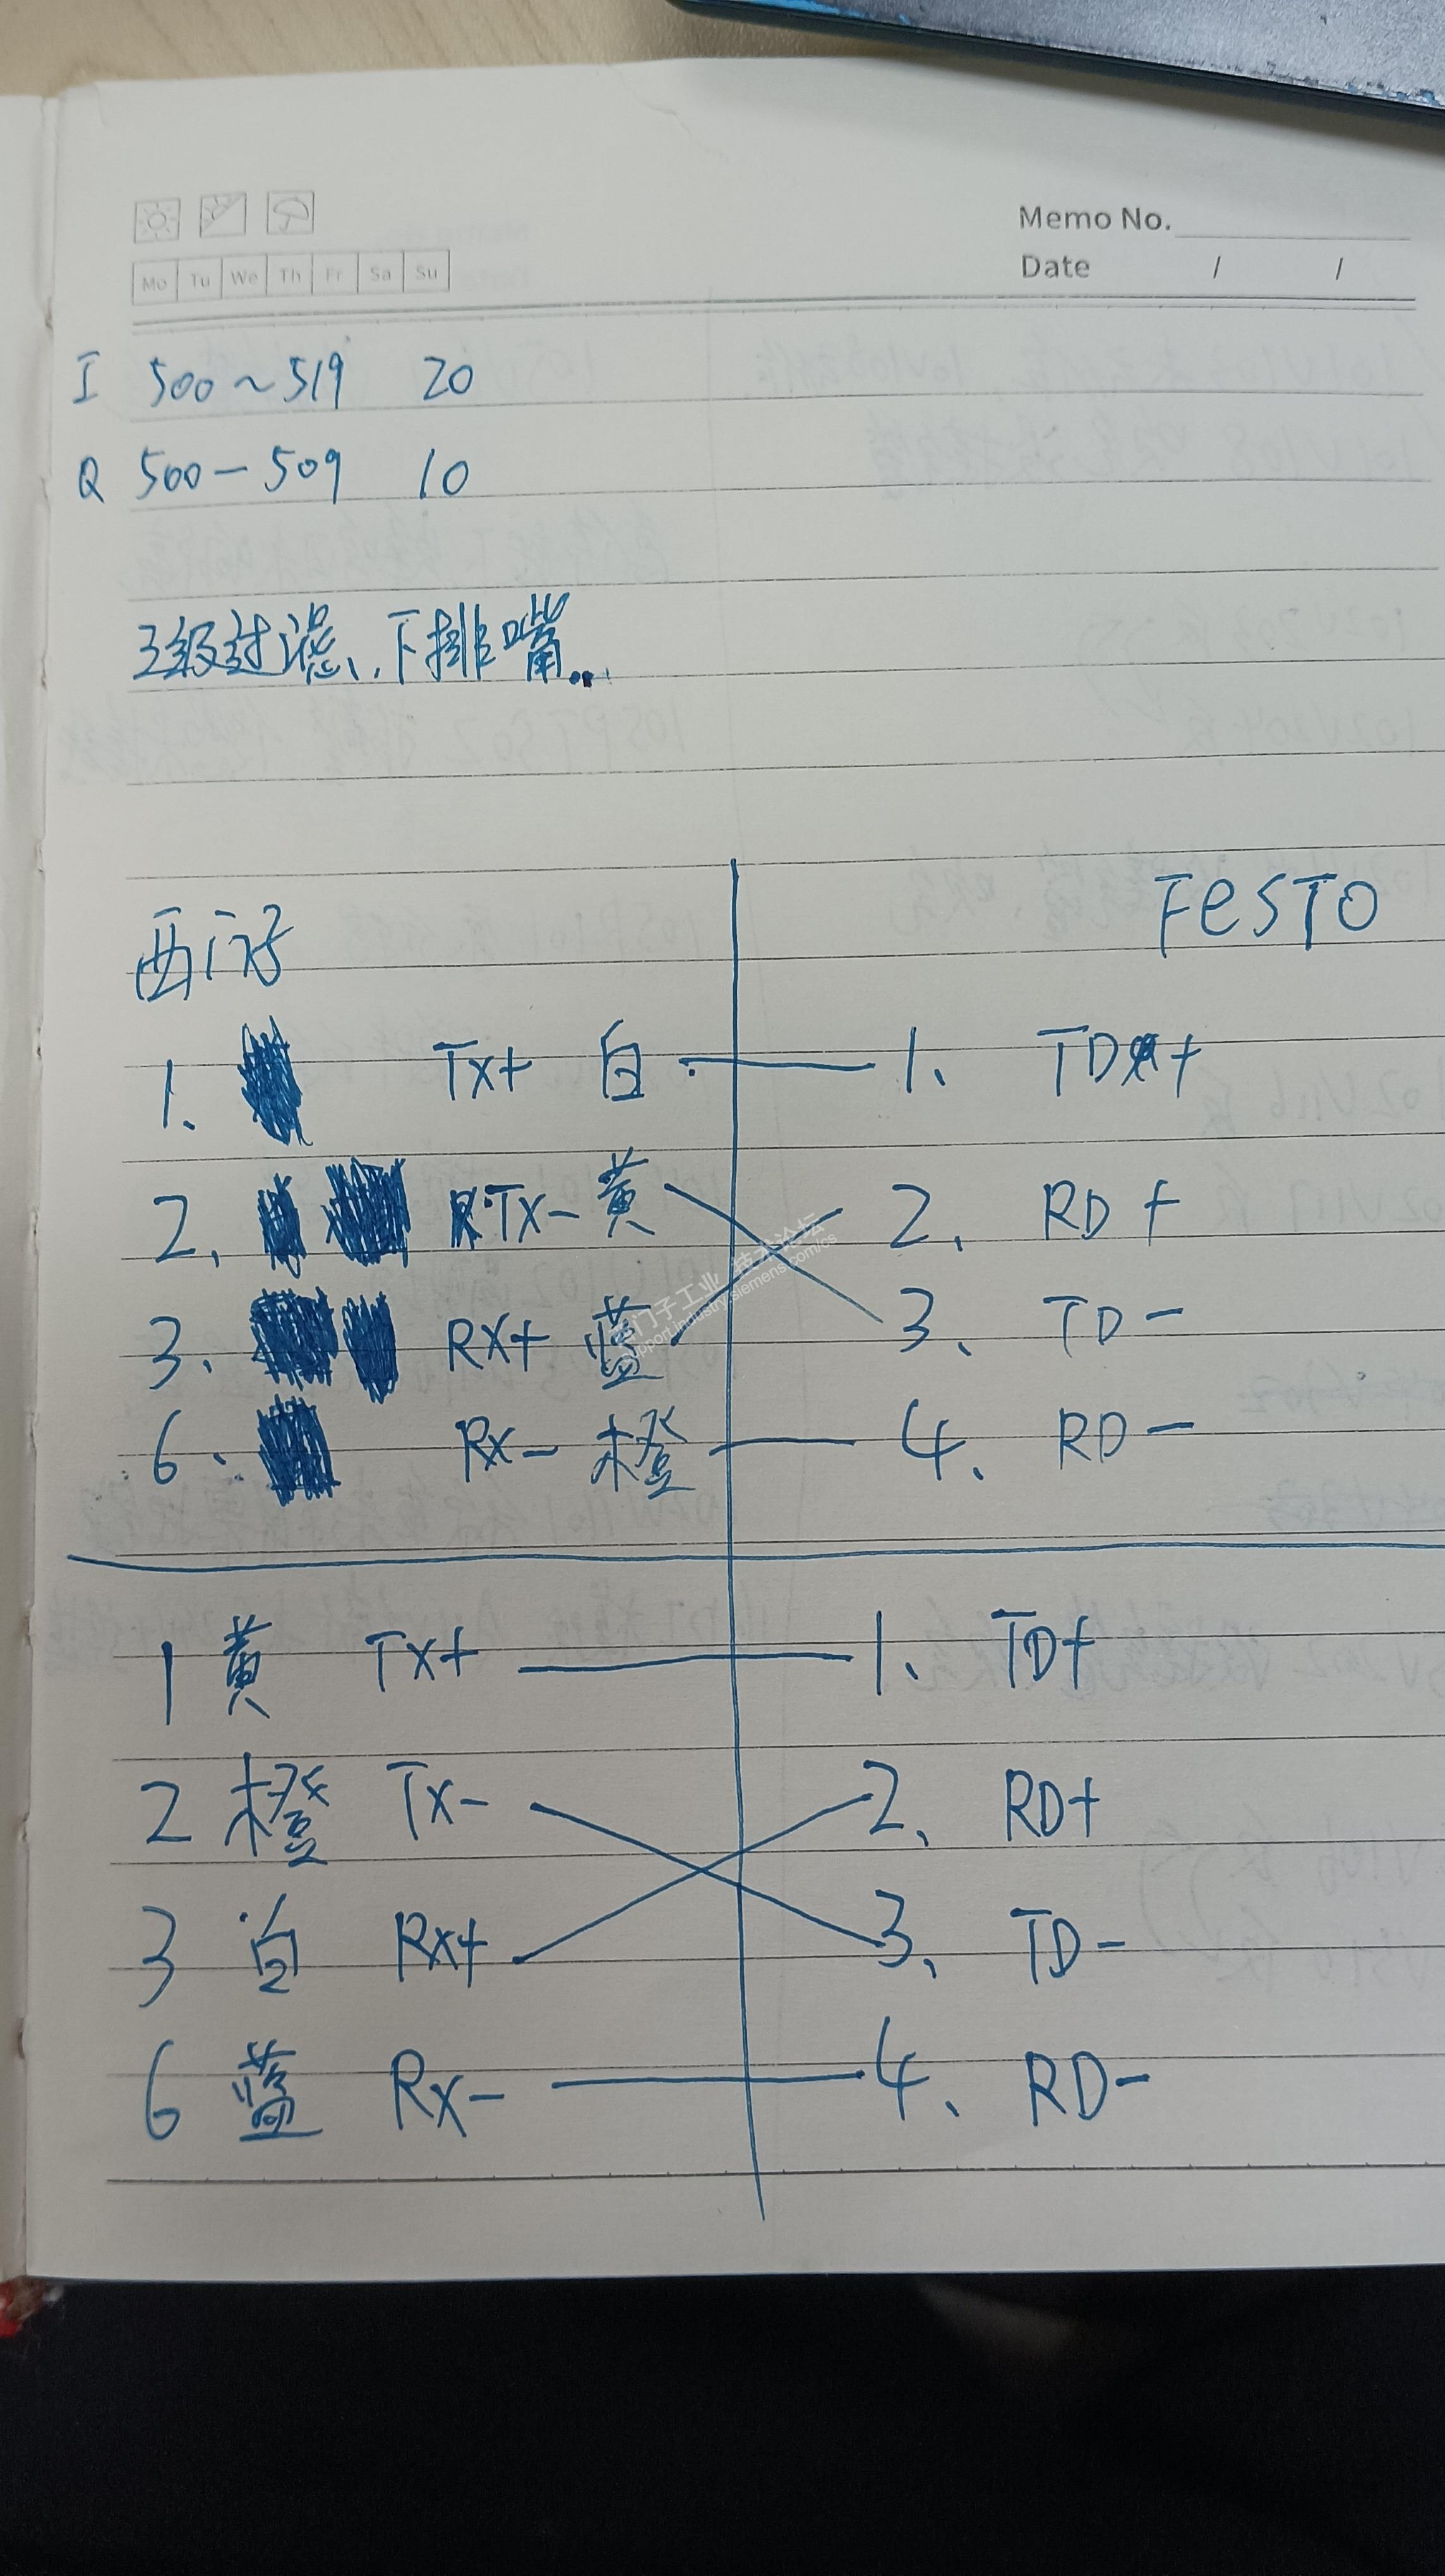 Memo No.
Date / /
Mo Tu We Th Fr Sa Su
I 500~519 20
Q 500-509 10
3级过滤、下排嘴...
西门子
FESTO
1. Tx+ 白 1、 TD+
2、 Tx- 黄 2、 RD+
3、 Rx+ 蓝 3、 TD-
6、 Rx- 橙 4、 RD-
1 黄 Tx+ 1、 TD+
2 橙 Tx- 2、 RD+
3 白 Rx+ 3、 TD-
6 蓝 Rx- 4、 RD-
西门子工业 技术论坛
support.industry.siemens.com/cs